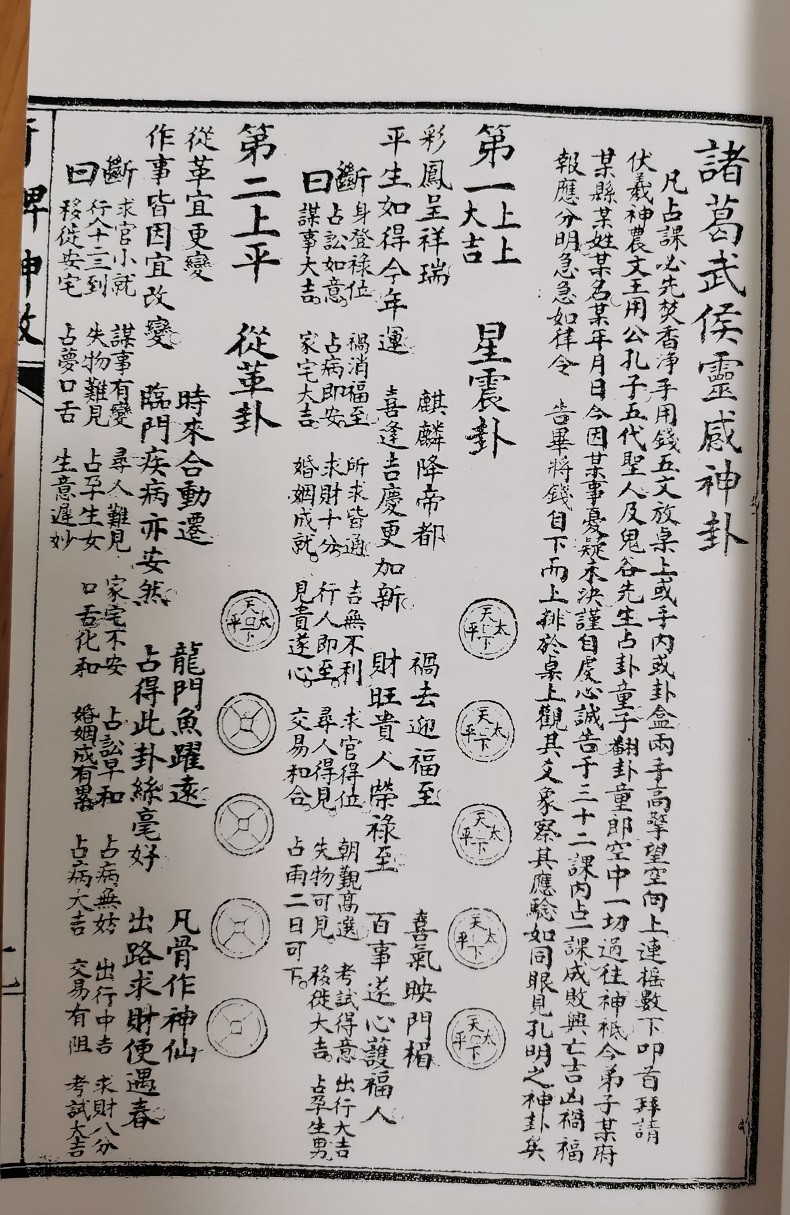 諸葛武侯靈感神卦
凡占課必先焚香淨手用錢五文放桌上或手內或卦盒兩手高擎望空向上連搖數下叩首拜請
伏羲神農文王用公孔子五代聖人及鬼谷先生占卦童子翻卦童郎空中一切過往神祇今弟子某府
某縣某姓某名某年月日今因某事憂疑未決謹自虔心誠告于三十二課內占一課成敗興亡吉凶禍福
報應分明急急如律令 告畢將錢自下而上排於桌上觀其爻象察其應驗如同眼見孔明之神卦矣
第一上上大吉 星震卦
彩鳳呈祥瑞 麒麟降帝都 禍去迎福至 喜氣映門楣
平生如得今年運 喜逢吉慶更加新 財旺貴人榮祿至 百事遂心護福人
天下太平 天下太平 天下太平 天下太平 天下太平
斷曰
身登祿位 禍消福至 所求皆通 吉無不利 求官得位 朝覲高選 考試得意 出行大吉
占訟如意 占病即安 求財十分 行人即至 尋人得見 失物可見 移徙大吉 占孕生男
謀事大吉 家宅大吉 婚姻成就 見貴遂心 交易和合 占雨二日可下
第二上平 從革卦
從革宜更變 時來合動遷 龍門魚躍遠 凡骨作神仙
作事皆因宜改變 臨門疾病亦安然 占得此卦絲毫好 出路求財便遇春
天下太平
斷曰
求官小就 謀事有變 尋人難見 家宅不安 占訟早和 占病無妨 出行中吉 求財八分
行人十三到 失物難見 占孕生女 口舌化和 婚姻成有累 占病大吉 交易有阻 考試大吉
移徙安宅 占夢口舌 生意遲妙